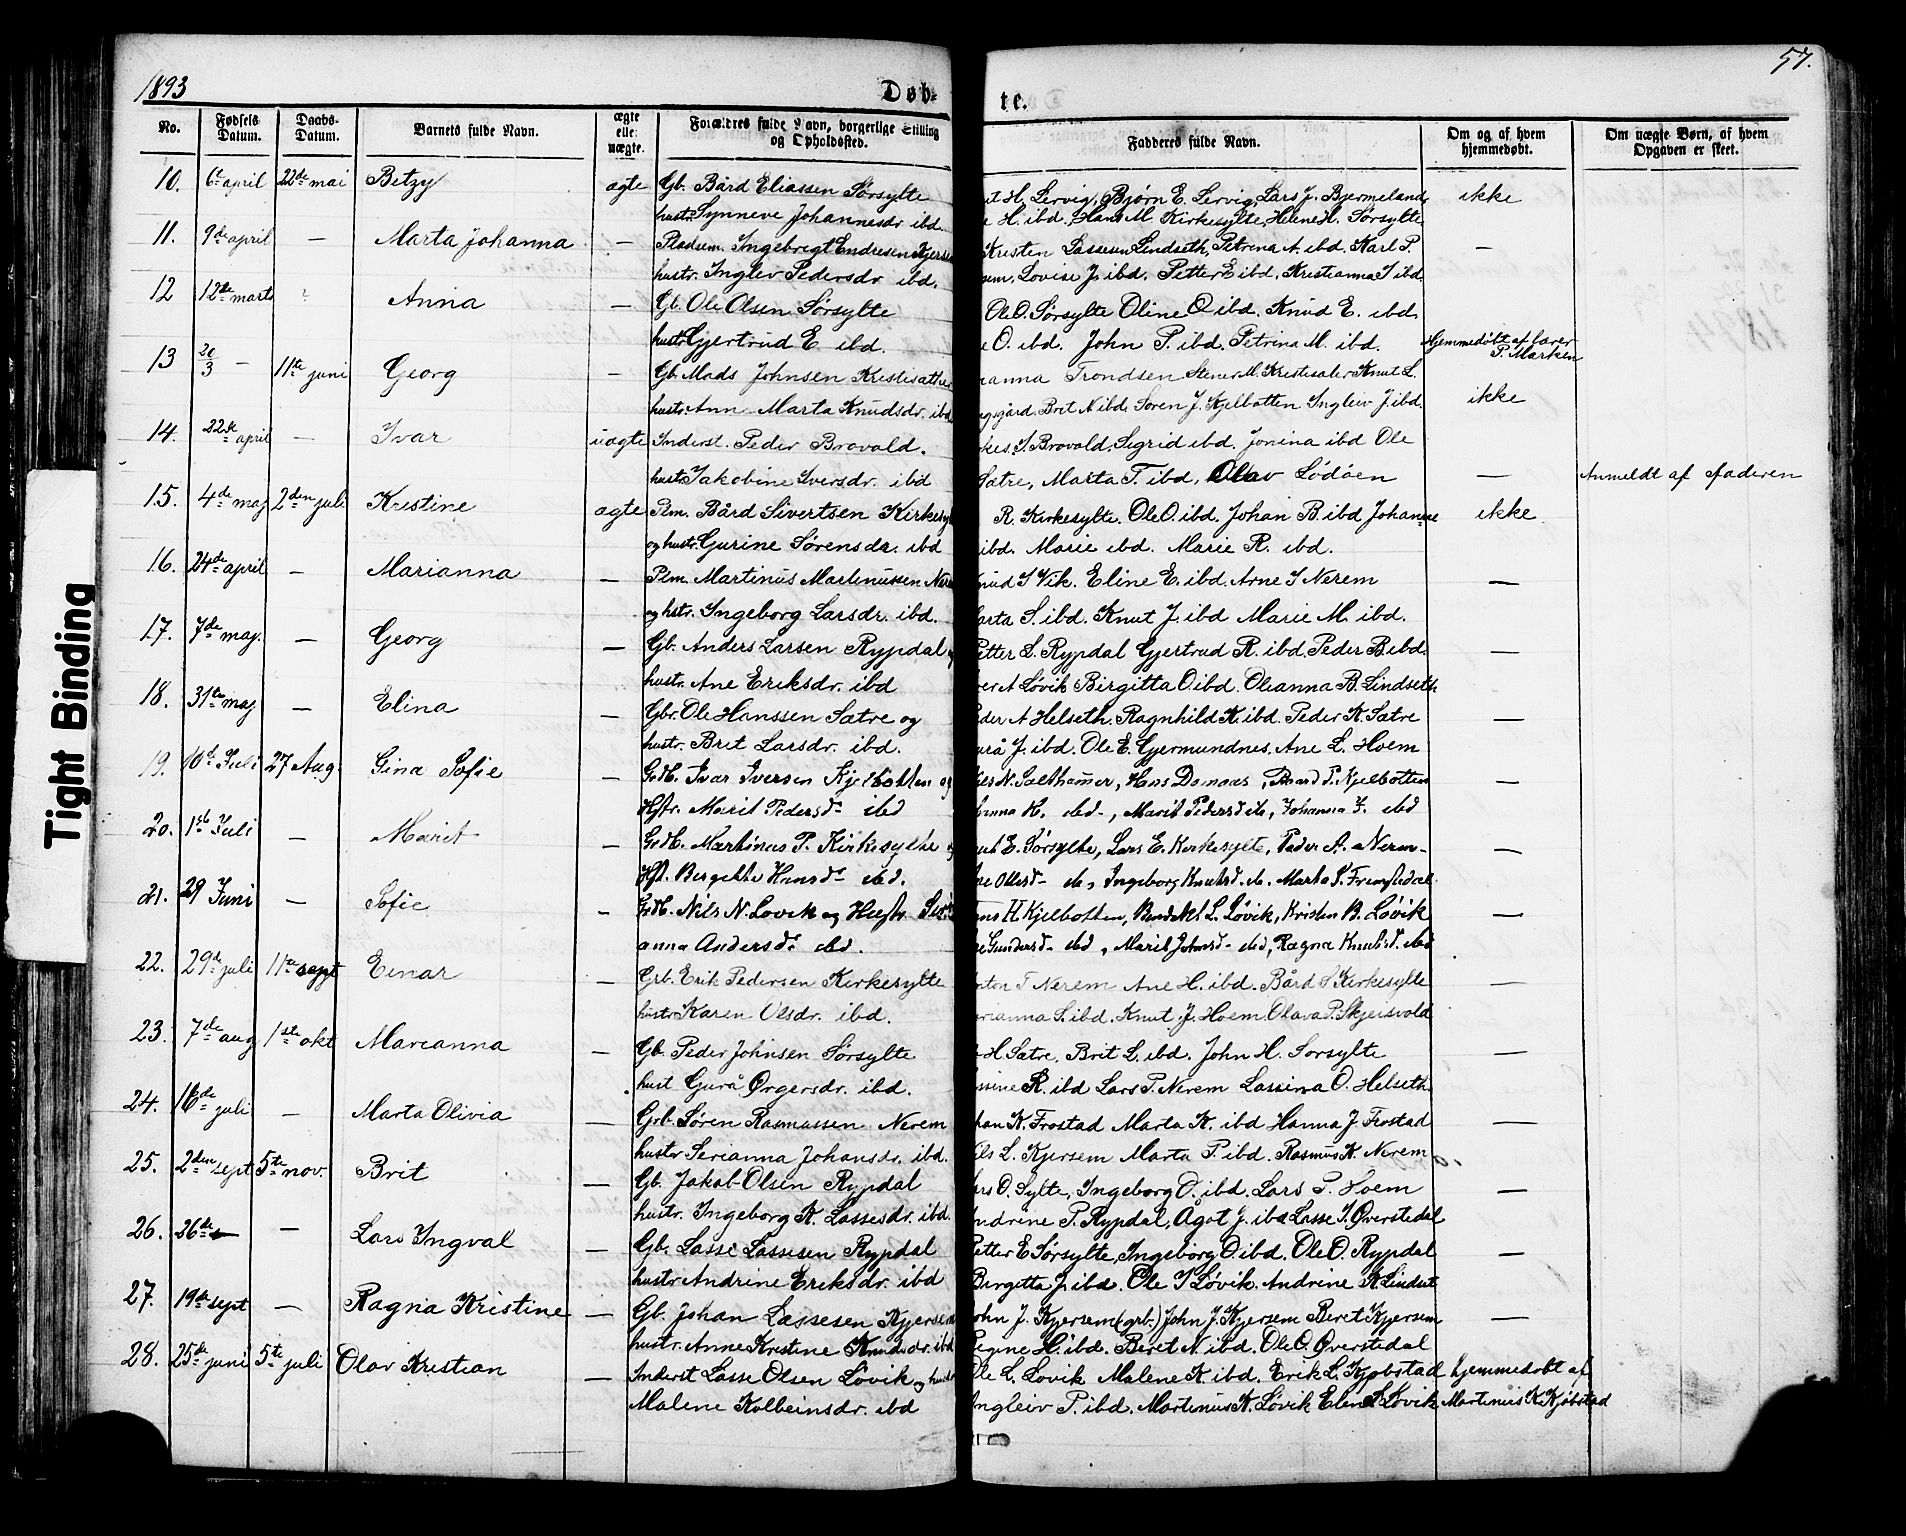 1893
Døb-
te.
57.
No. Fødsels Datum. Daabs-Datum. Barnets fulde Navn. ægte elle uægte. Forældres fulde Navn, borgerlige Stilling og Opholdssted. Fadderes fulde Navn. Om og af hvem hjemmedøbt. Om uægte Børn, af hvem Opgaven er skeet.
10. 6te april 22de mai Betzy ægte Gb. Bård Eliassen Sørsylte H. Lervig, Bjørn E. Lervig, Lars J. Bjermeland, ikke
hustr. Synneve Johannesdr ibd. H. ibd. Hans M. Kirkesylte, Helene H. Sørsylte
11. 9de april — Marta Johanna — Pladsm. Ingebrigt Endresen Kristen Lassesen Lindseth, Petrina A. ibd. Karl P. —
hustr. Inglev Pedersdr ibd. Lovise J. ibd. Petter E ibd, Kristianna I ibd.
12 12te marts Anna — Gb. Ole Olsen Sørsylte Ole O. Sørsylte Oline O ibd. Knud E. ibd.
hustr Gjertrud E ibd. O. ibd. John P. ibd. Petrina M. ibd. Hjemmedøbt af lærer
P. Marken
13 20/3 — 11te juni Georg — Gb. Mads Johnsen Trondsen Knut L.
hustr. Ann Marta Knudsdr. ibd Brit N ibd. Søren J. Kjelbotten Ingleiv J. ibd. ikke
14. 22de april — Ivar uægte Inderst. Peder Brovold. I. Brovald. Sigrid ibd. Jonina ibd Ole
hustr. Jakobine Iversdr. ibd Sætre, Marta T. ibd, Olav Lødøen — Anmeldt af Faderen
15. 4de maj 2den juli Kristine ægte Plm. Bård Sivertsen R. Kirkesylte. Ole O. ibd. Johan B. ibd ikke
og hustr. Gurine Sørensdr. ibd ibd. Marie ibd. Marie R. ibd.
16. 24de april — Marianna — Plm. Martinus Martinussen I Vik. Eline E. ibd. Arne I Nerem —
og hstr. Ingeborg Larsdr. ibd. S. ibd. Knut J. ibd Marie M. ibd.
17. 7de maj. — Georg — Gb. Anders Larsen Rypdal Petter L. Rypdal Gjertrud R. ibd. Peder B ibd. —
hustr. Ane Eriksdr. ibd A Løvik Birgitta O ibd. Oleanna B. Lindseth
18. 31te maj — Elina — Gbr. Ole Hanssen Sætre og A Helseth. Ragnhild K. ibd. Peder K. Sætre —
hustr. Brit Larsdr. ibd. J. ibd. Ole E. Gjermundnes, Ane L. Hoem
19. 10de Juli 27 Aug. Gina Sofie — Grdb. Ivar Iversen Kjelbotten N. Salthammer, Kjelbotten —
Hstr. Marit Pedersdr ibd K. ibd., Marit Pedersd ib, Johanna J. ibd
20. 1ste Juli — Marit — Grdb. Martinus P. Kirkesylte E. Sørsylte, Lars E. Kirkesylte, Peder A. Nerem —
Hst. Hansdr ibd. Ingeborg Knutsd.
21. 29 Juni — Sofie — Grdb. Nils N. Lovik og Hustr. H Kjelbotten, L. Løvik, Kristen B. Løvik —
anna Andersdr ibd. Gundersd. ibd, Marit Johnsd. ibd, Ragna Knutsd. ibd
22. 29de juli 11te sept Einar — Grb. Erik Pedersen Kirkesylte T Nerem Ane H. ibd. Bård S Kirkesylte —
hustr Karen Olsdr. ibd. S. ibd. Knut J. Hoem. Olava P. Skjersvold
23. 7de aug 1ste okt Marianna — Gb. Peder Johnsen Sørsylte H. Sætre, Brit L. ibd. John H. Sørsylte —
hust Gurå Ørgersdr. ibd. R. ibd Lars P. Nerem Lassina O. Helseth
24. 16de juli — Marta Olivia — Grb. Søren Rasmussen Nerem K. Frostad Marta K. ibd Hanna J Frostad —
hustr Serianna Johansdr. ibd. L. Kjersem Marta P. ibd. Rasmus K. Nerem
25. 2den sept 5te nov. Brit — Gb. Jakob Olsen Rypdal O. Sylte, Ingeborg O. ibd. Lars P. Hoem —
hustr. Ingeborg K. Lassesdr. ibd. Andrine P. Rypdal, Ågot J. ibd Lasse I. Øverstedal
26. 26de — Lars Ingval — Gb. Lasse Lassesen Rypdal Petter E Sørsylte, Ingeborg O. ibd. Ole O. Rypdal —
hustr Andrine Eriksdr. ibd Birgitta J. ibd. Ole I Løvik. Andrine K Lindset
27. 19de sept — Ragna Kristine — Gb. Johan Lassesen Kjersem John J. Kjersem (grb.) John J. Kjersem Beret Kjersem —
hustr. Anne Kristine Knudsdr. ibd H. ibd. Beret N. ibd. Ole O. Øverstedal
28. 25de juni 5te juli Olav Kristian — Inderst Lasse Olsen Løvik og L. Løvik Malene K ibd. Erik L. Kjøbstad hjemmedøbt af
Malene Kolbeinsdr. ibd Ingleiv P. ibd. Martinus K. Løvik Løvik Martinus K Kjøbstad
Tight Binding